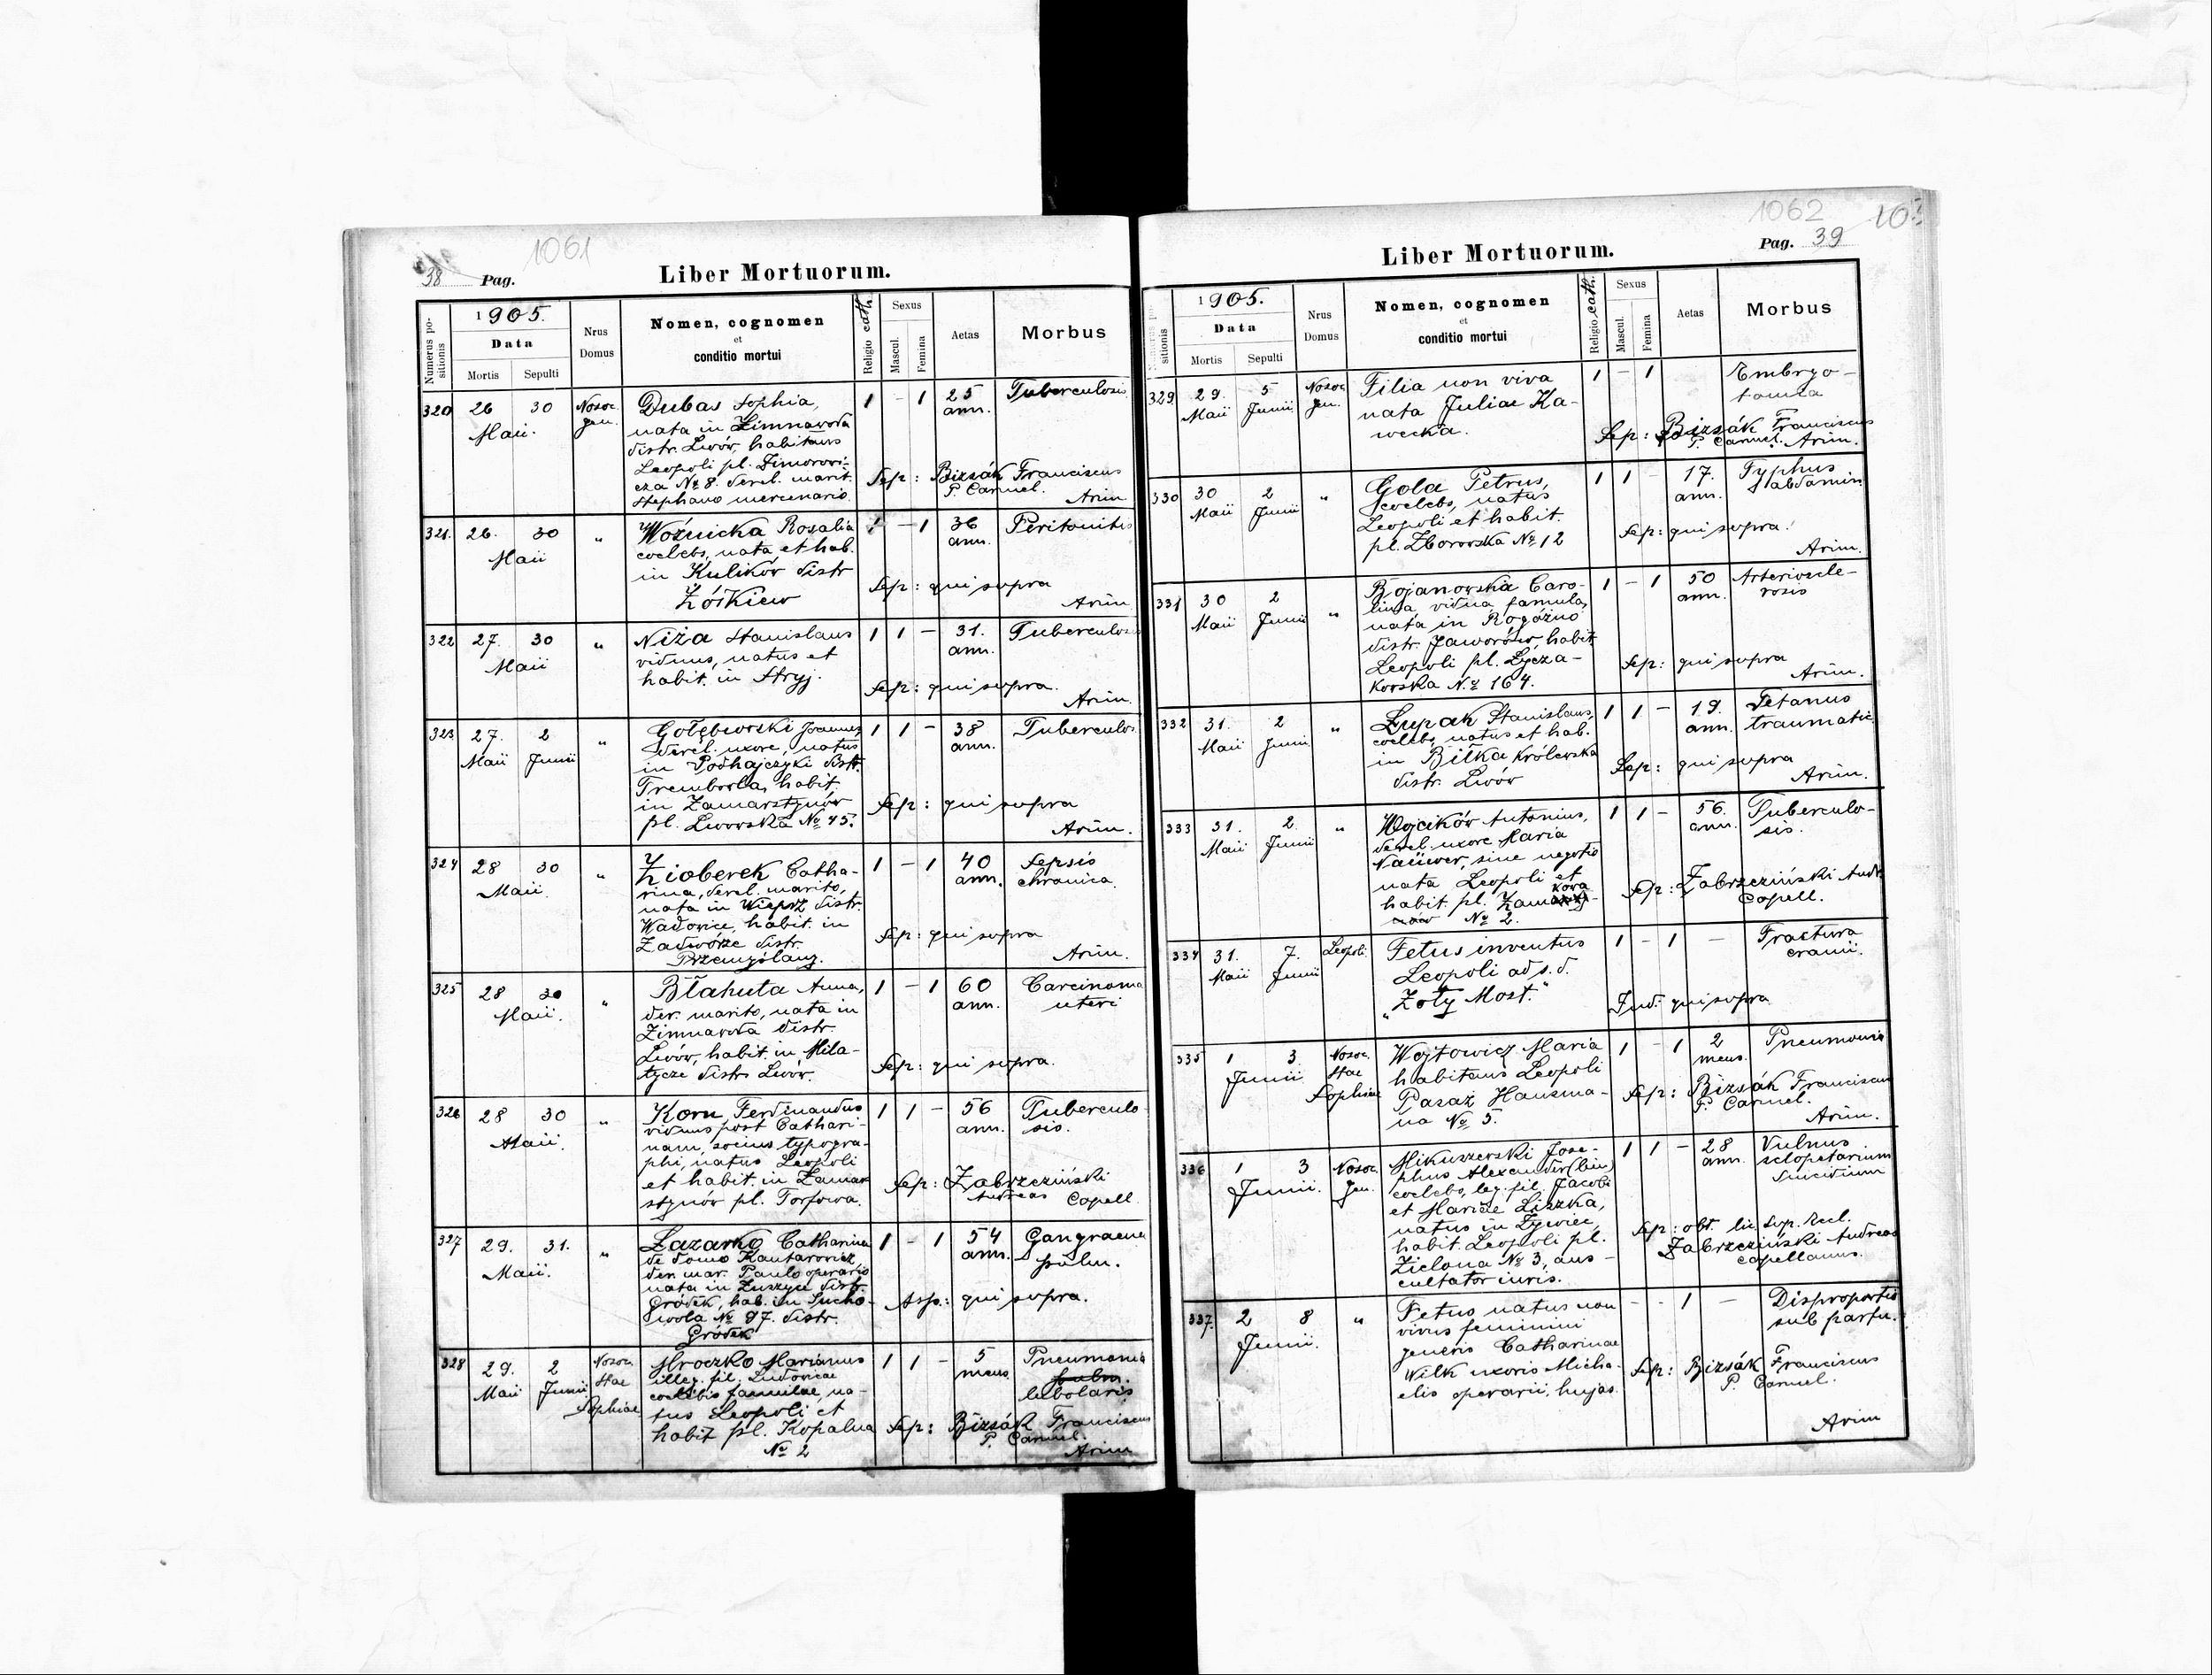 1061
38 Pag.
Liber Mortuorum.
Numerus positionis
1905.
Data
Mortis
Sepulti
Nrus
Domus
Nomen, cognomen
et
conditio mortui
Religio cath.
Sexus
Mascul.
Femina
Aetas
Morbus
320 26 30 Nosoc. Dubas Sophia, 1 - 1 25 Tuberculosis
Maii. gen. nata in Zimnawoda ann.
distr. Lwów, habitans
Leopoli pl. Zimorowi-
cza No 8. derel. marit. Sep: Bizsák Franciscus
P. Carmel.
Stephano mercenario. Arim.
321. 26. 30 " Woźnicka Rosalia 1 - 1 36 Peritonitis
Maii coelebs, nata et hab. ann.
in Kulików distr
Żółkiew Sep: qui supra
Arim
322 27. 30 " Niża Stanislaus 1 1 - 31. Tuberculosis
Maii viduus, natus et ann.
habit. in Stryj. Sep: qui supra.
Arim.
323 27. 2 " Gołębiowski Joannes 1 1 - 38 Tuberculos
Maii Junii derel. uxore, natus ann.
in Podhajczyki distr.
Trembowla, habit.
in Zamarstynów Sep: qui supra
pl. Lwowska No 45. Arim.
324 28 30 " Zioberek Catha- 1 - 1 40 Sepsis
Maii. rina, derel. marito, ann. chronica.
nata in Wieprz distr.
Wadowice, habit. in
Zadwórze distr. Sep: qui supra
Przemyślany. Arim.
325 28 30 " Błahuta Anna, 1 - 1 60 Carcinoma
Maii. der. marito, nata in ann. uteri
Zimnawoda distr.
Lwów, habit. in Mila-
tycze distr. Lwów. Sep: qui supra.
326 28 30 " Korn Ferdinandus 1 1 - 56 Tuberculo
Maii. viduus post Cathari- ann. sis.
nam, socius typogra-
phi, natus Leopoli
et habit. in Zamar Sep: Zabrzeziński
stynów pl. Torfowa. Andreas Capell
327 29. 31. " Łazarko Catharina 1 - 1 54 Gangraena
Maii. de domo Kantarowicz ann. pulm.
der. mar. Paulo operario
nata in Zuszyce distr.
Gródek, hab. in Sucho- Asp.: qui supra.
wola No 97. distr.
Gródek
328 29. 2 Nosoc. Mroczko Marianus 1 1 - 5 Pneumonia
Maii Junii Stae illeg. fil. Ludovicae mens pulm.
Sophiae coelebis famulae, na- lobolaris
tus Leopoli et
habit pl. Kopalna Sep: Bizsák Franciscus
P. Carmel.
No 2 Arim
1062
Pag. 39
Liber Mortuorum.
Numerus positionis
1905.
Data
Mortis
Sepulti
Nrus
Domus
Nomen, cognomen
et
conditio mortui
Religio cath.
Sexus
Mascul.
Femina
Aetas
Morbus
329 29. 5 Nosoc. Filia non viva 1 - 1 Embryo-
Maii Junii gen. nata Juliae Ka- tomia
wecka. Sep: Bizsák Franciscus
P. Carmel. Arim.
330 30 2 " Gola Petrus, 1 1 - 17. Typhus
Maii Junii coelebs, natus ann. abdomin
Leopoli et habit.
pl. Zborowska No 12 Sep: qui supra.
Arim.
331 30 2 " Bojanowska Caro- 1 - 1 50 Arterioscle-
Maii Junii lina vidua famula, ann. rosis
nata in Rogóźno
distr. Jaworów, habit.
Leopoli pl. Łycza- Sep: qui supra
kowska No 164. Arim.
332 31. 2 " Łupak Stanislaus, 1 1 - 19. Tetanus
Maii Junii coelebs, natus et hab. ann. traumatic
in Biłka królewska
distr. Lwów Sep: qui supra
Arim.
333 31. 2. " Wojcików Antonius, 1 1 - 56. Tuberculo-
Maii Junii derel. uxore Maria ann. sis.
sine negotio
nata Leopoli et
habit. pl. Sep: Zabrzeziński Andr.
No 2. Capell.
334 31. 7. Leopoli Fetus inventus 1 - 1 - Fractura
Maii Junii Leopoli ad s. d. cranii.
„Żołty Most." Ind: qui supra
335 1 3 Nosoc. Wojtowicz Maria 1 - 1 2 Pneumonia
Junii Stae habitans Leopoli mens.
Sophiae Pasaż Hausma- Sep: Bizsák Franciscus
P. Carmel.
na No 5. Arim.
336 1 3 Nosoc. Mikuszewski Jose- 1 1 - 28 Vulnus
Junii. gen. phus Alexander (bin) ann. sclopetarium
coelebs, leg. fil. Jacobi suicidium
et Mariae Liszka,
natus in Żywiec,
habit. Leopoli pl. Sep: obt. lic. Sup. Eccl.
Zielona No 3, aus- Zabrzeziński Andreas
cultator iuris. capellanus.
337. 2 8 " Fetus natus non - - 1 - Disproportio
Junii. vivus feminini sub partu.
generis Catharinae
Wilk uxoris Micha- Sep: Bizsák Franciscus
elis operarii, hujas. P. Carmel.
Arim